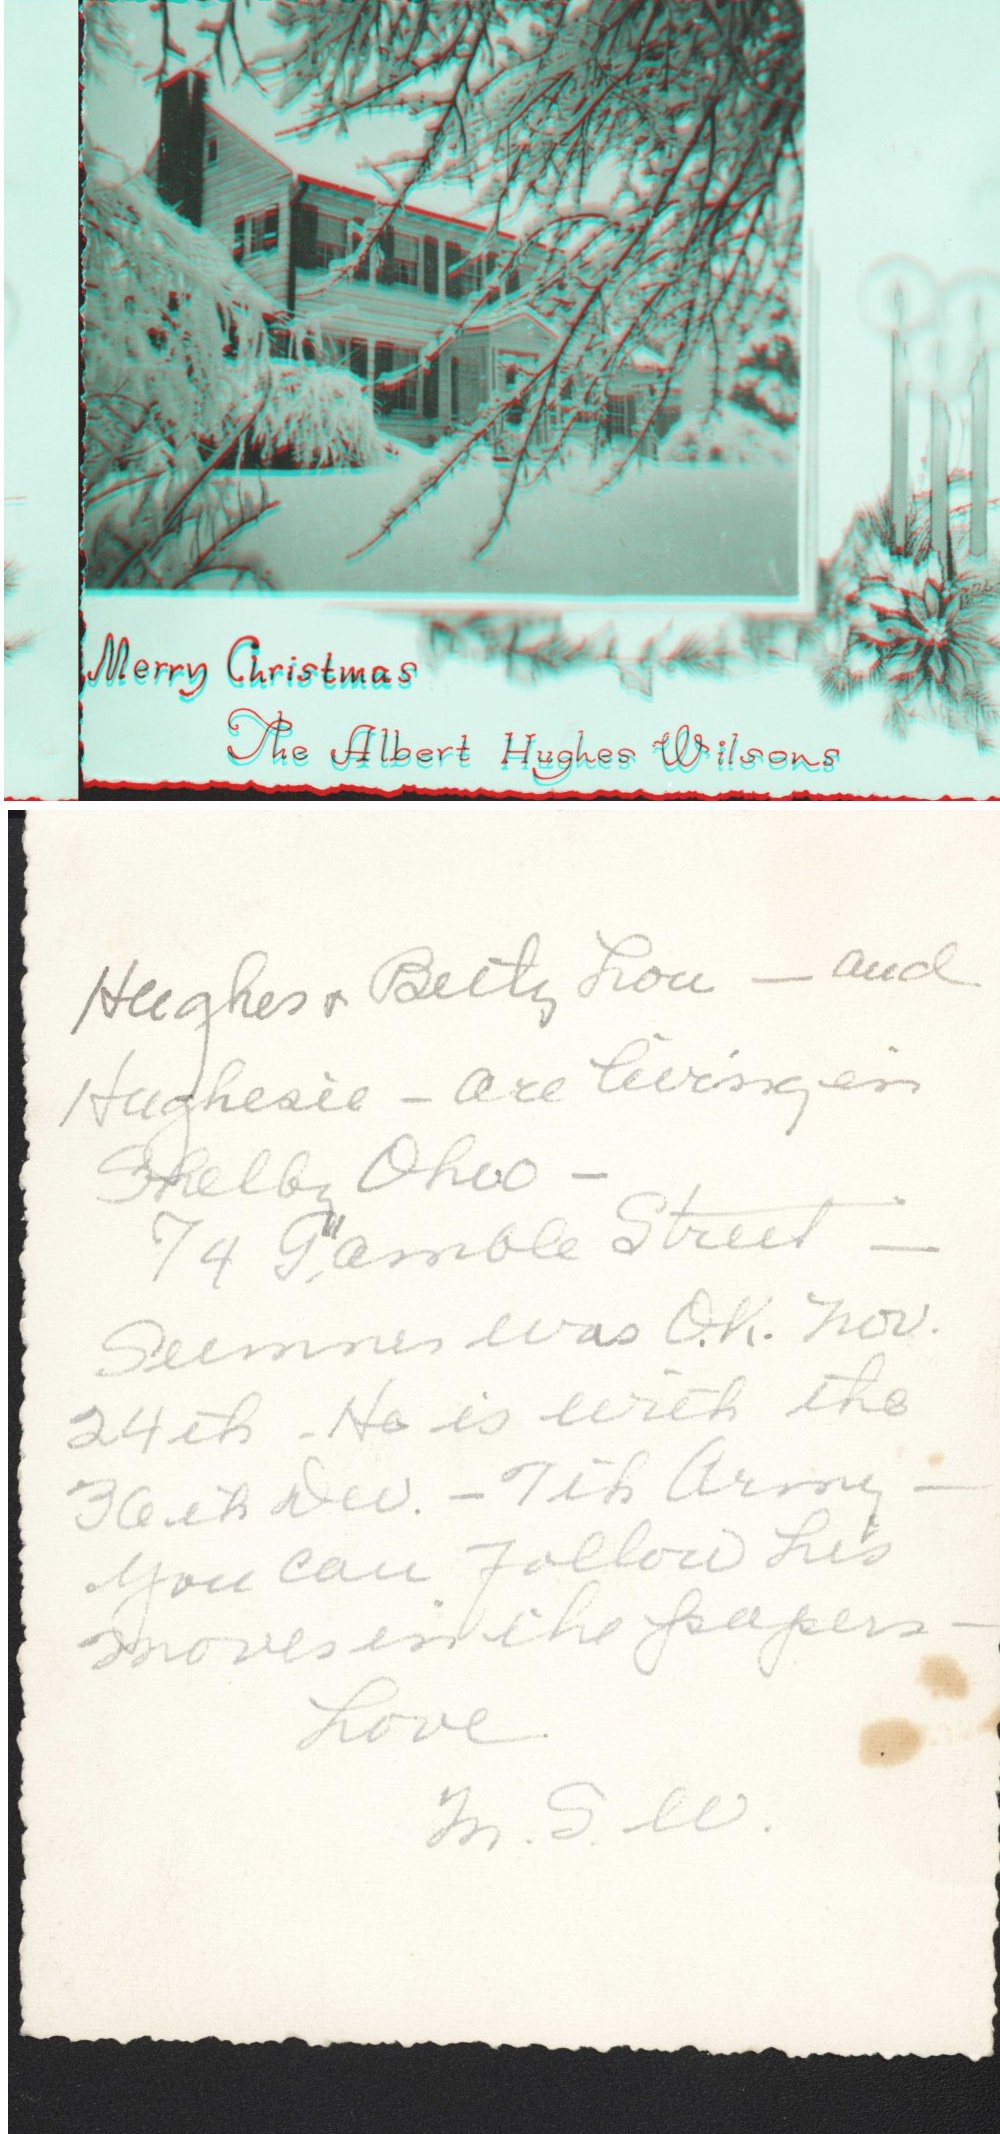 Merry Christmas
The Albert Hughes Wilsons
Hughes & Betty Lou — and
Hughesie – are living in
Shelby Ohio –
74 "Gamble Street —
Sumner was O.K. Nov.
24th. He is with the
36th Div. – 7th Army –
You can follow his
moves in the papers –
Love
M. S. W.